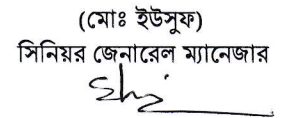 (মোঃ ইউসুফ)
সিনিয়র জেনারেল ম্যানেজার